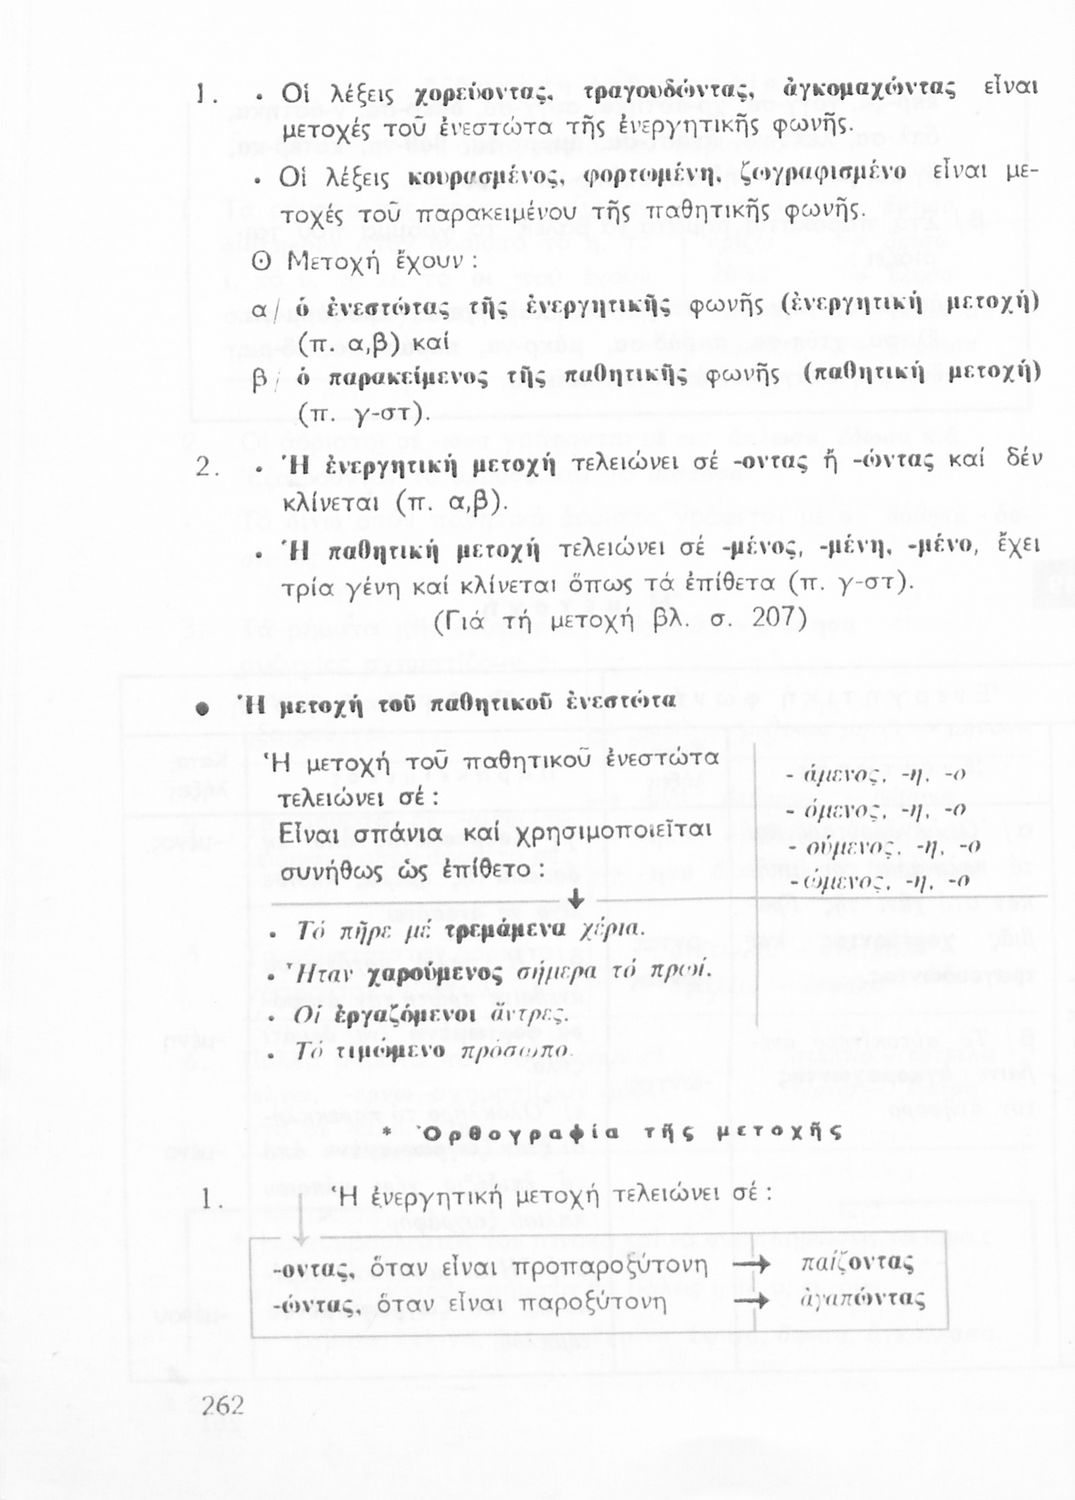 1. • Οἱ λέξεις χορεύοντας, τραγουδώντας, ἀγκομαχώντας εἶναι
μετοχές τοῦ ἐνεστώτα τῆς ἐνεργητικῆς φωνῆς.
• Οἱ λέξεις κουρασμένος, φορτωμένη, ζωγραφισμένο εἶναι με-
τοχές τοῦ παρακειμένου τῆς παθητικῆς φωνῆς.
Θ Μετοχή ἔχουν :
α/ ὁ ἐνεστώτας τῆς ἐνεργητικῆς φωνῆς (ἐνεργητική μετοχή)
(π. α,β) καί
β/ ὁ παρακείμενος τῆς παθητικῆς φωνῆς (παθητική μετοχή)
(π. γ-στ).
2. • Ἡ ἐνεργητική μετοχή τελειώνει σέ -οντας ἤ -ώντας καί δέν
κλίνεται (π. α,β).
• Ἡ παθητική μετοχή τελειώνει σέ -μένος, -μένη, -μένο, ἔχει
τρία γένη καί κλίνεται ὅπως τά ἐπίθετα (π. γ-στ).
(Γιά τή μετοχή βλ. σ. 207)
• Ἡ μετοχή τοῦ παθητικοῦ ἐνεστώτα
Ἡ μετοχή τοῦ παθητικοῦ ἐνεστώτα
τελειώνει σέ :
Εἶναι σπάνια καί χρησιμοποιεῖται
συνήθως ὡς ἐπίθετο :
- άμενος, -η, -ο
- όμενος, -η, -ο
- ούμενος, -η, -ο
- ώμενος, -η, -ο
• Τό πῆρε μέ τρεμάμενα χέρια.
• Ἦταν χαρούμενος σήμερα τό πρωί.
• Οἱ ἐργαζόμενοι ἄντρες.
• Τό τιμώμενο πρόσωπο.
* Ὀρθογραφία τῆς μετοχῆς
1. Ἡ ἐνεργητική μετοχή τελειώνει σέ :
-οντας, ὅταν εἶναι προπαροξύτονη → παίζοντας
-ώντας, ὅταν εἶναι παροξύτονη → ἀγαπώντας
262